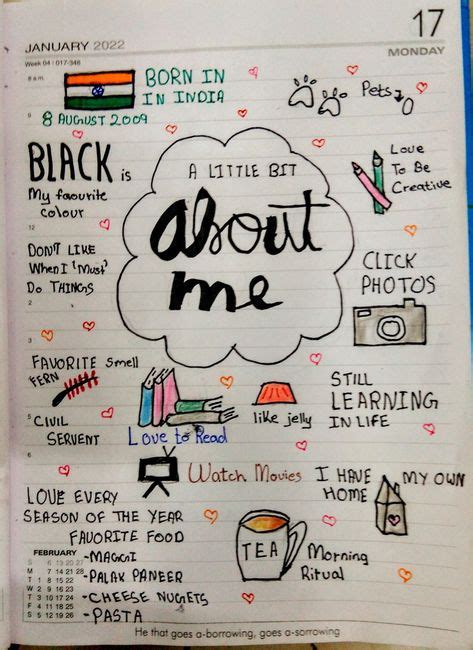 17
JANUARY 2022
MONDAY
Week 04 : 017-348
8 a.m.
BORN IN
IN INDIA
Pets → 0
9
8 AUGUST 2009
BLACK is
My favourite
colour
A LITTLE BIT
about
me
Love
To Be
Creative
12
DON'T LIKE
When I 'Must'
Do THINGS
CLICK
PHOTOS
2
3
FAVORITE Smell
FERN
STILL
LEARNING
IN LIFE
like jelly
5
CIVIL
SERVENT
Love to Read
6
Watch Movies
I HAVE MY OWN
HOME
LOVE EVERY
SEASON OF THE YEAR
FAVORITE FOOD
- MAGGI
- PALAK PANEER
- CHEESE NUGGETS
- PASTA
TEA
Morning
Ritual
FEBRUARY
S 6 13 20 27
M 7 14 21 28
T 1 8 15 22
W 2 9 16 23
T 3 10 17 24
F 4 11 18 25
S 5 12 19 26
He that goes a-borrowing, goes a-sorrowing